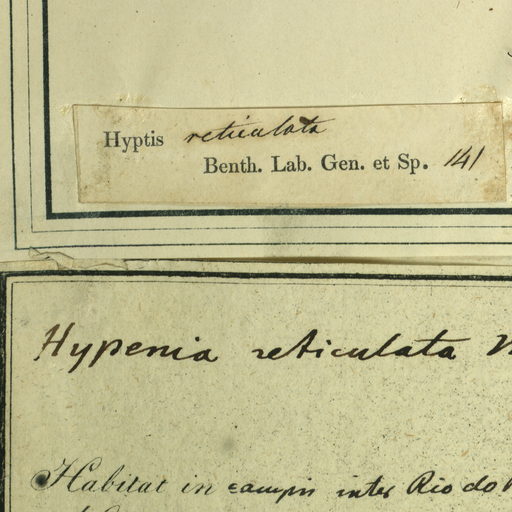 Hyptis reticulata
Benth. Lab. Gen. et Sp. 141
Hypenia reticulata
Habitat in campis inter Rio do